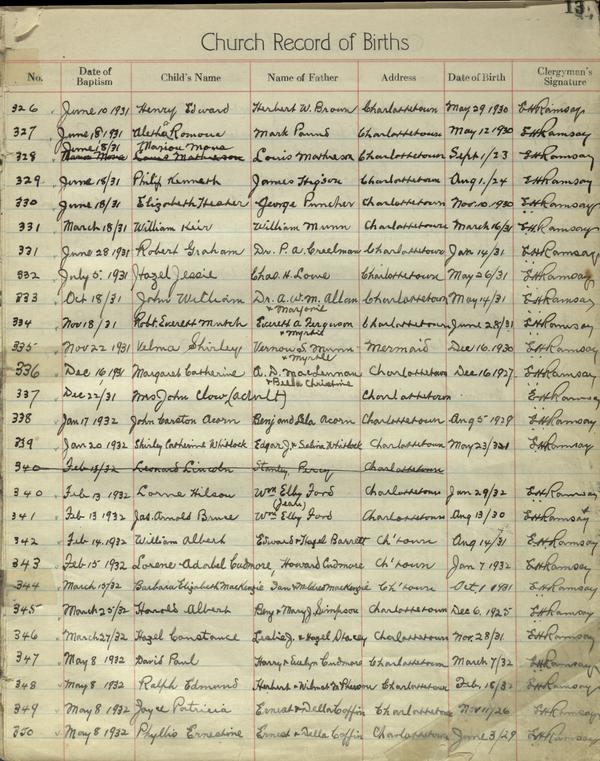 13
Church Record of Births
No. Date of Baptism Child's Name Name of Father Address Date of Birth Clergyman's Signature
326 June 10 1931 Henry Edward Herbert W. Brown Charlottetown May 29 1930 E.H. Ramsay
327 June 18 1931 Romova Mark Pound Charlottetown May 12 1930 E.H. Ramsay
June 18/31 Marion Mona
328 Louis Matheson Louis Matheson Charlottetown Sept 1/23 E.H. Ramsay
329 June 18/31 Philip Kenneth James Higson Charlottetown Aug 1./24 E.H. Ramsay
330 June 18/31 Elizabeth Heater George Puncher Charlottetown Nov 10. 1930 E.H. Ramsay
331 March 18/31 William Keir William Munn Charlottetown March 16/31 E.H. Ramsay
331 June 28 1931 Robert Graham Dr. P. A. Creelman Charlottetown Jan 14/31 E.H. Ramsay
332 July 5. 1931 Hazel Jessie Chas. H. Lowe Charlottetown May 26/31 E.H. Ramsay
333 Oct 18/31 John William Dr. A. W. M. Allan Charlottetown May 14/31 E.H. Ramsay
+ Marjorie
334 Nov 18/31 Robt Everett Mutch Everett A Ferguson Charlottetown June 28/31 E.H. Ramsay
+ Myrtle
335 Nov 22 1931 Velma Shirley Vernon S Munn Mermaid Dec 16. 1930 E.H. Ramsay
+ Myrtle
336 Dec 16, 1931 Margaret Catherine A. D. MacLennan Charlottetown Dec 16 1927 E.H. Ramsay
+ Bella Christine
337 Dec 22/31 Mrs John Clow (adult) Charlottetown E.H. Ramsay
338 Jan 17 1932 John Carston Acorn Benj and Bela Acorn Charlottetown Aug 5 1929 E.H. Ramsay
339 Jan 20 1932 Shirley Catherine Whitlock Edgar J. + Selina Whitlock Charlottetown May 23/31 E.H. Ramsay
340 Feb 13/32 Leonard Lincoln Stanley Percy Charlottetown
340 Feb 13 1932 Lorne Hilson Wm Elby Ford Charlottetown Jan 29/32 E.H. Ramsay
(Jean)
341 Feb 13 1932 Jas. Arnold Bruce Wm Elby Ford Charlottetown Aug 13/30 E.H. Ramsay
342 Feb 14. 1932 William Albert Edward + Hazel Barrett Ch'town Aug 14/31 E.H. Ramsay
343 Feb 15 1932 Lorene Adabel Cudmore, Howard Cudmore Ch'town Jan 7 1932 E.H. Ramsay
344 March 15/32 Barbara Elizabeth MacKenzie Ian + Mildred MacKenzie Ch'town Oct 1 1931 E.H. Ramsay
345 March 25/32 Harold Albert Benj + Mary J. Simpson Charlottetown Dec 6. 1925 E.H. Ramsay
346 March 27/32 Hazel Constance Leslie J. + Hazel Stacey Charlottetown Nov. 28/31 E.H. Ramsay
347 May 8 1932 David Paul Harry + Evelyn Cudmore Charlottetown March 7/32 E.H. Ramsay
348 May 8 1932 Ralph Edmund Herbert + Wilmot McPherson Charlottetown Feb 18/32 E.H. Ramsay
349 May 8 1932 Joyce Patricia Ernest + Della Coffin Charlottetown Nov 11/26 E.H. Ramsay
350 May 8 1932 Phyllis Ernestine Ernest + Della Coffin Charlottetown June 3/29 E.H. Ramsay